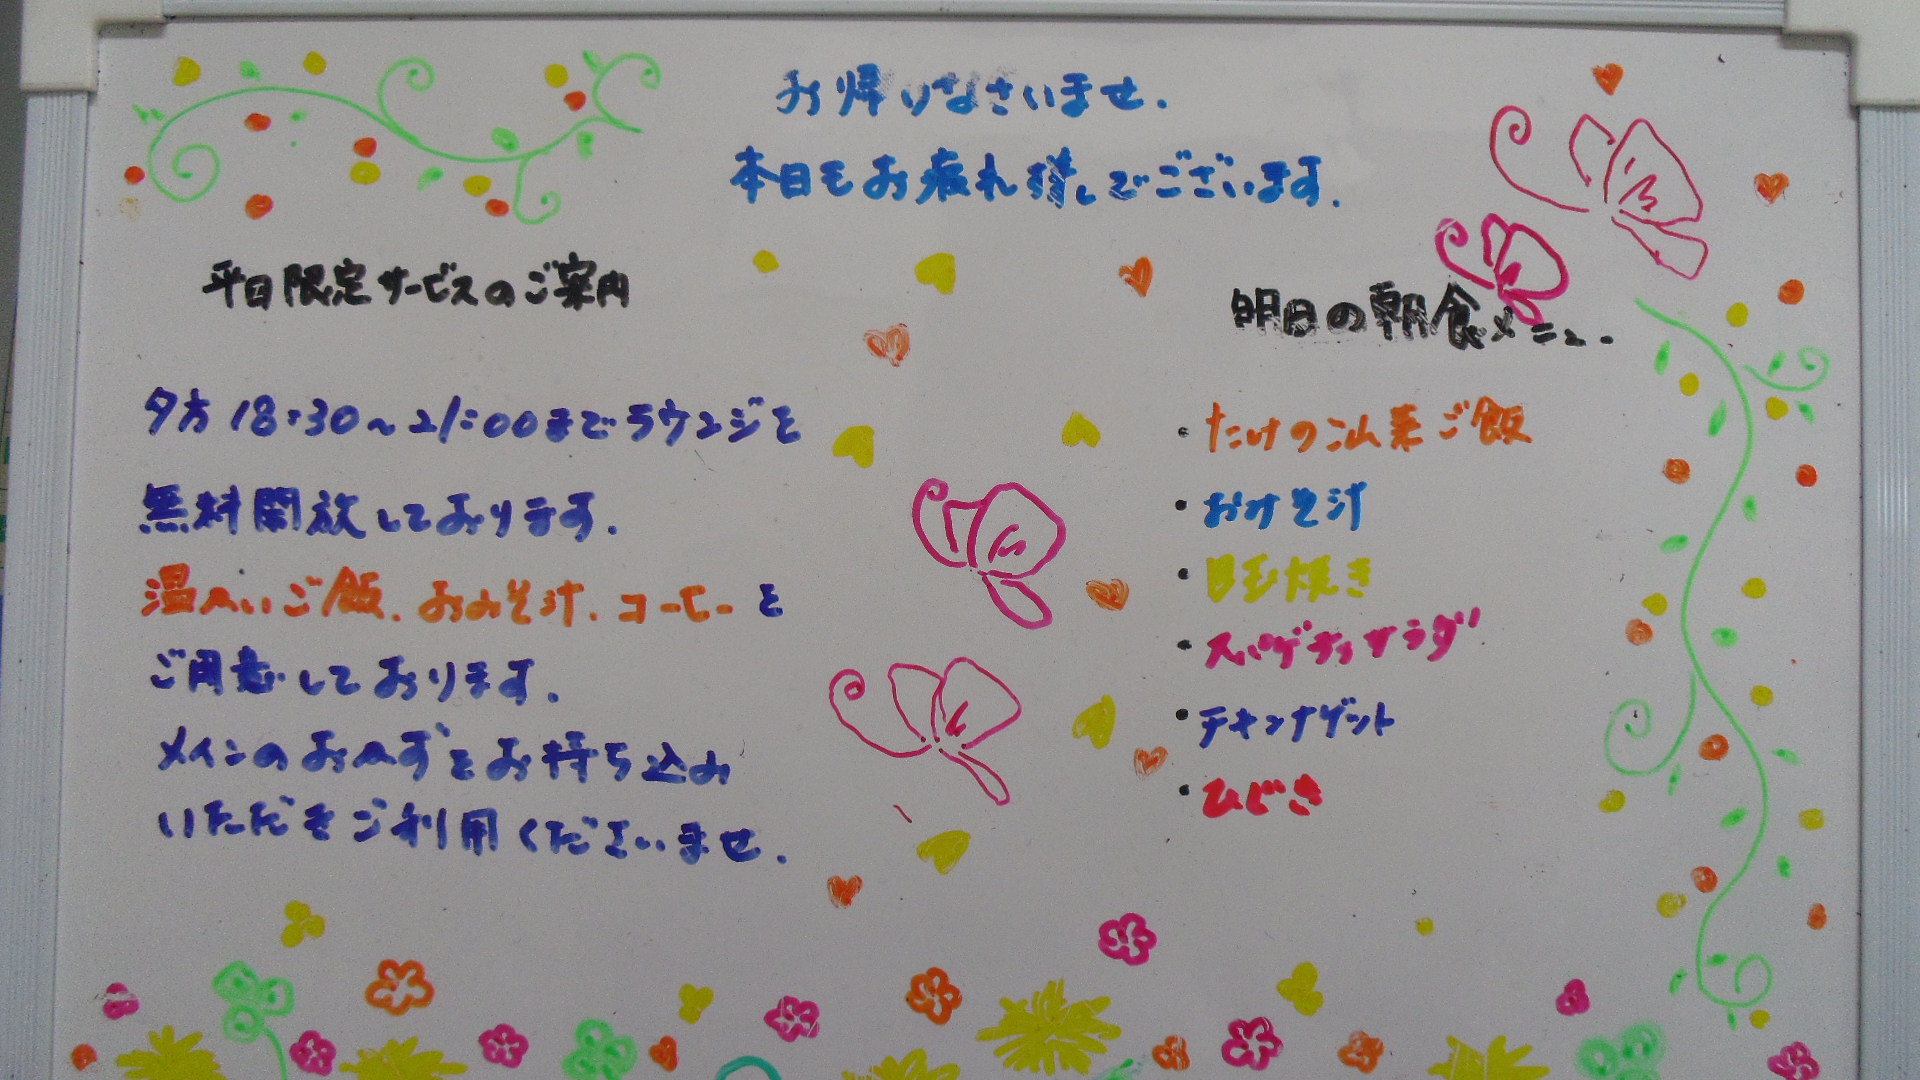 お帰りなさいませ.
本日もお疲れ様しでございます.
平日限定サービスのご案内
夕方18:30~21:00までラウンジを
無料開放しております.
温かいご飯.おみそ汁.コーヒーを
ご用意しております.
メインのおかずをお持ち込み
いただきご利用くださいませ.
明日の朝食メニュー
・たけのこ山菜ご飯
・おみそ汁
・目玉焼き
・スパゲティサラダ
・チキンナゲット
・ひじき